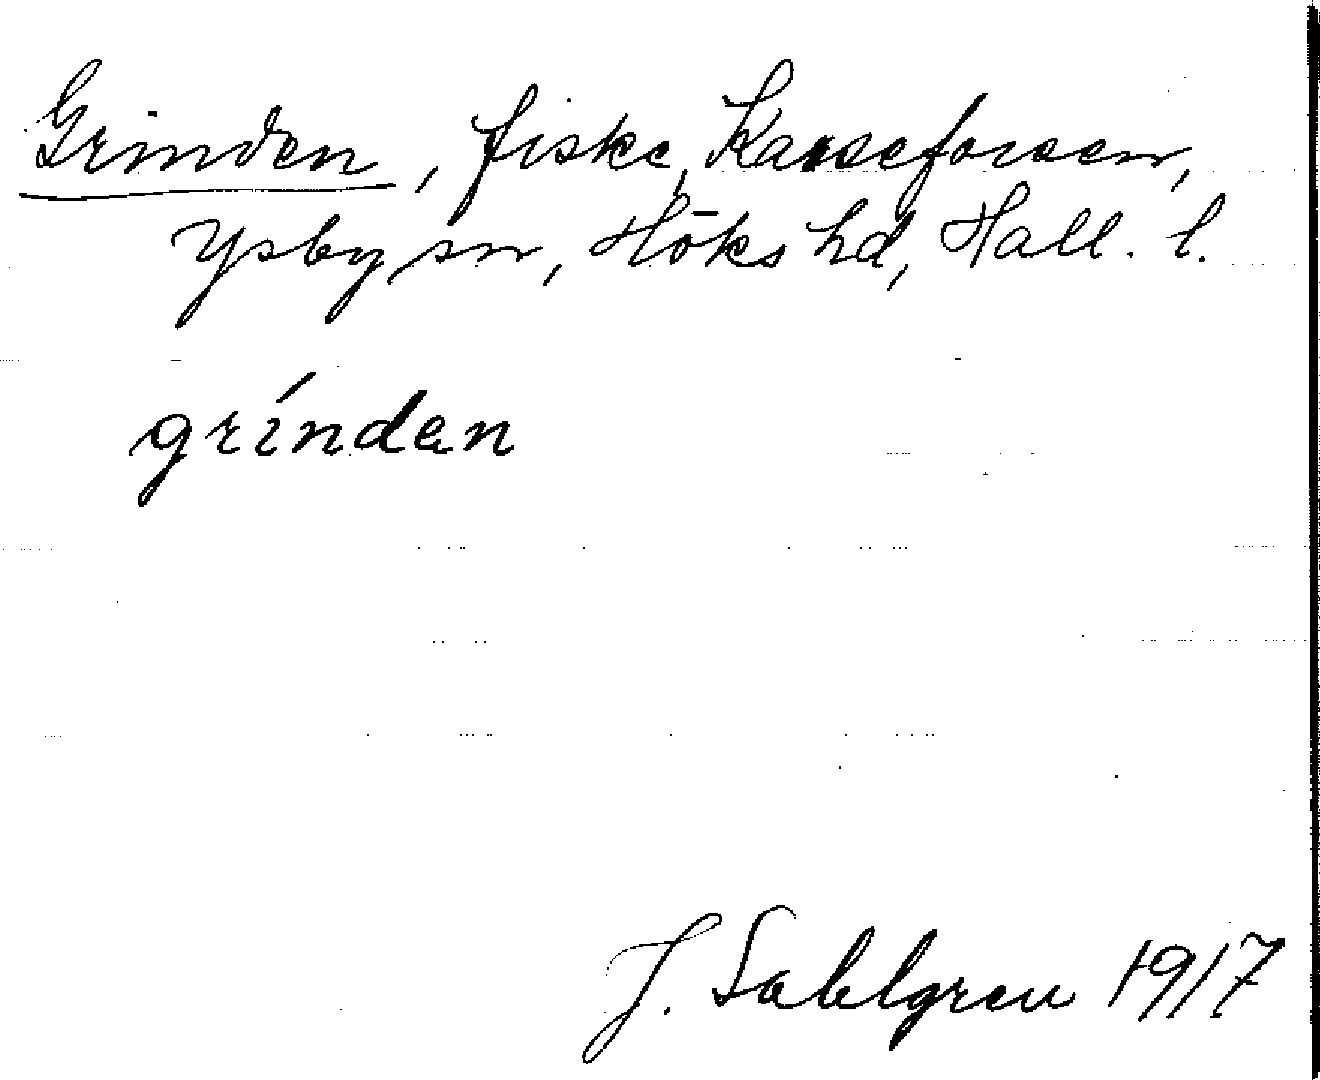 Grinden, fiske, Karseforsen,
Ysby sn, Höks hd, Hall. l.
gríndan
J. Sahlgren 1917